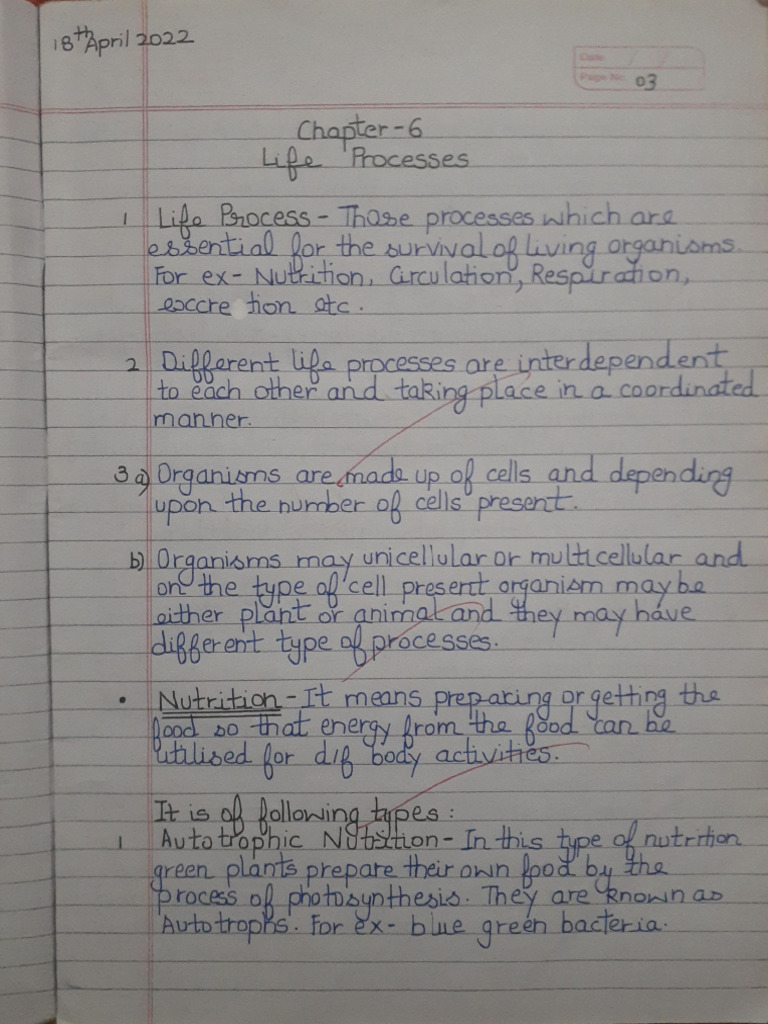 18th April 2022
Date / /
Page No. 03
Chapter-6
Life Processes
1 Life Process - Those processes which are
essential for the survival of living organisms.
For ex- Nutrition, Circulation, Respiration,
excre tion etc.
2 Different life processes are interdependent
to each other and taking place in a coordinated
manner.
3 a) Organisms are made up of cells and depending
upon the number of cells present.
b) Organisms may unicellular or multicellular and
on the type of cell present organism may be
either plant or animal and they may have
different type of processes.
• Nutrition - It means preparing or getting the
food so that energy from the food can be
utilised for dif body activities.
It is of following types :
1 Autotrophic Nutrition - In this type of nutrition
green plants prepare their own food by the
process of photosynthesis. They are known as
Autotrophs. For ex- blue green bacteria.